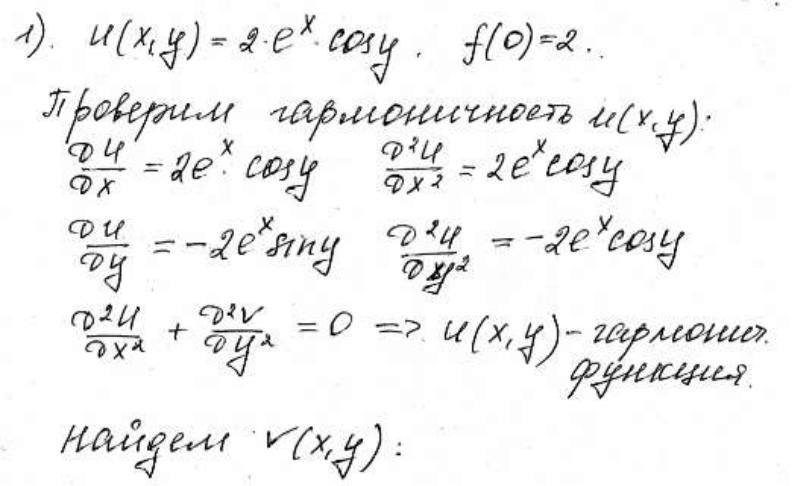 1). u(x,y) = 2·e^x·cosy. f(0)=2..
Проверим гармоничность u(x,y):
∂u/∂x = 2e^x·cosy ∂²u/∂x² = 2e^x cosy
∂u/∂y = -2e^x siny ∂²u/∂y² = -2e^x cosy
∂²u/∂x² + ∂²v/∂y² = 0 => u(x,y) - гармонич.
функция.
Найдем v(x,y):